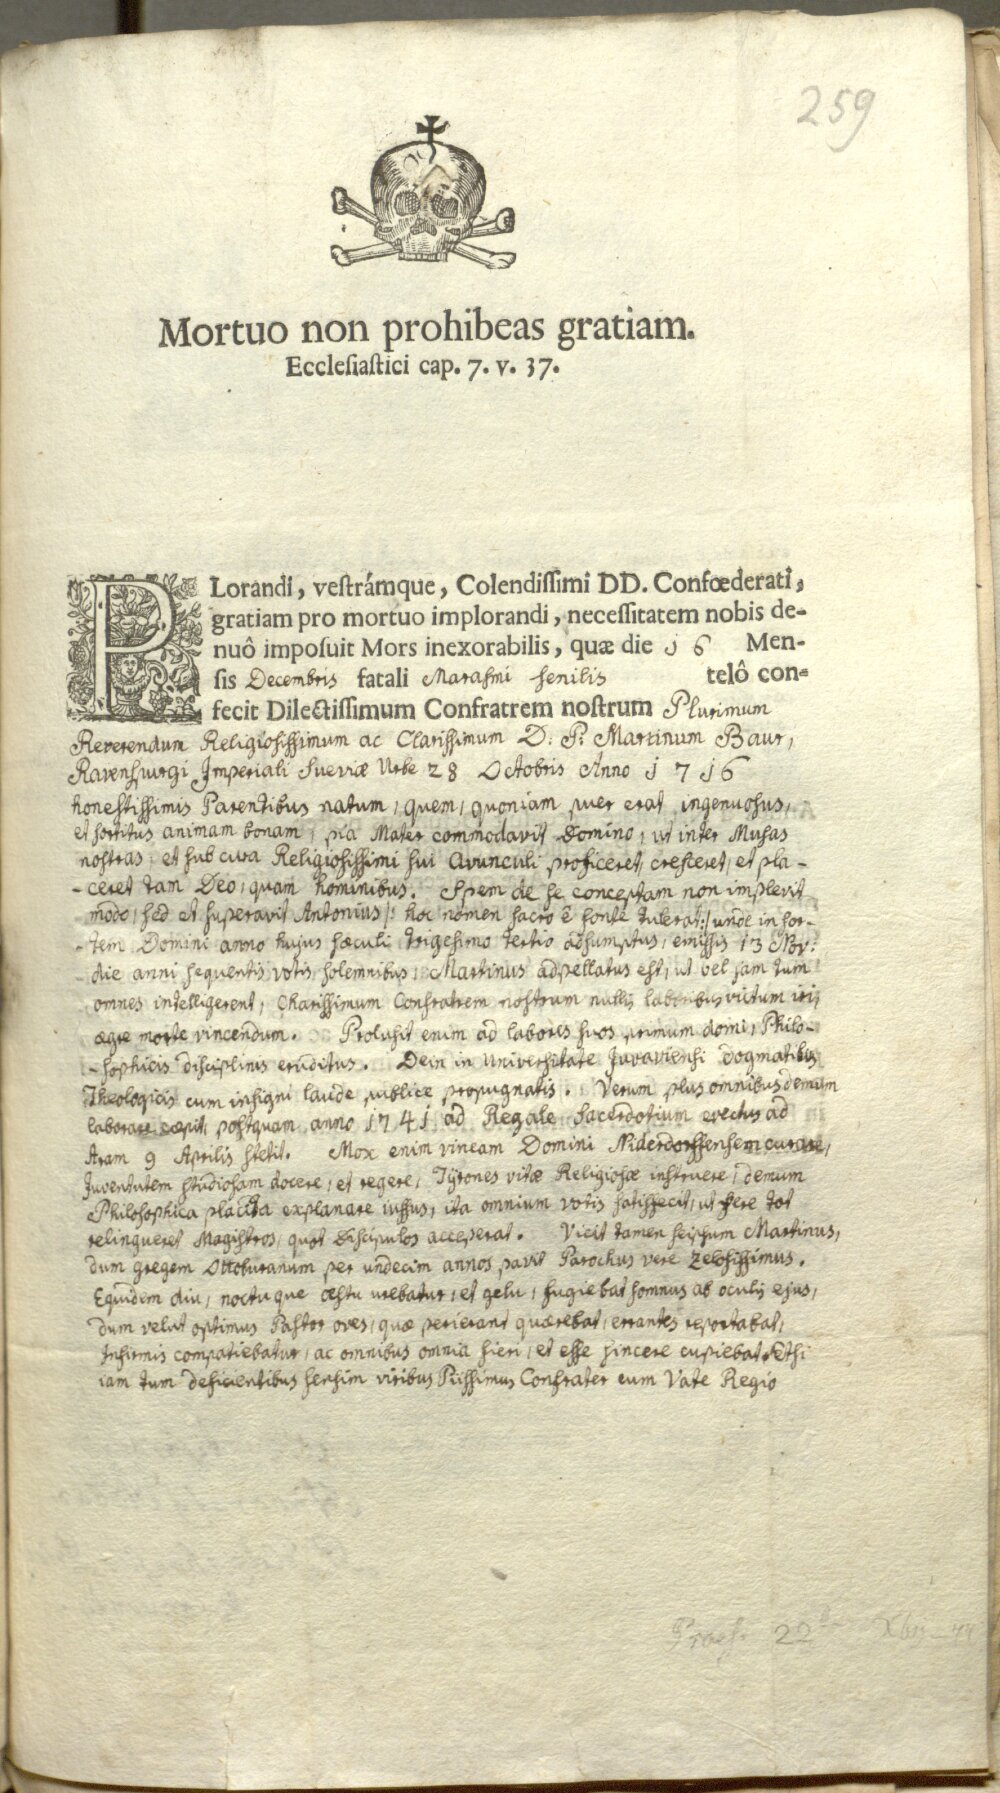 259
Mortuo non prohibeas gratiam.
Eccleſiaſtici cap. 7. v. 37.
PLorandi, veſtrámque, Colendiſſimi DD. Confœderati,
gratiam pro mortuo implorandi, neceſſitatem nobis de-
nuô impoſuit Mors inexorabilis, quæ die 16 Men-
ſis Decembris fatali Maraſmi ſenilis telô con-
fecit Dilectiſſimum Confratrem noſtrum Plurimum
Reverendum Religioſiſſimum ac Clariſſimum D: P: Martinum Baur,
Ravenſpurgi Imperiali Sueviæ Urbe 28 Octobris Anno 1716
honeſtiſſimis Parentibus natum, quem, quoniam puer erat ingenuoſus,
et ſortitus animam bonam, pia Mater commodavit Domino, ut inter Muſas
noſtras, et ſub cura Religioſiſſimi ſui Avunculi proficeret, creſceret, et pla-
-ceret tam Deo, quam hominibus. Spem de ſe conceptam non implevit
modo, ſed et ſuperavit Antonius /: hoc nomen ſacro ê fonte tulerat:/ unde in ſor-
-tem Domini anno hujus ſæculi trigeſimo tertio adſumptus, emiſſis 13 Nov:
die anni ſequentis votis ſolemnibus, Martinus adpellatus eſt, ut vel jam tum
omnes intelligerent, Chariſſimum Confratrem noſtrum nullis laboribus victum iri,
ægre morte vincendum. Proluſit enim ad labores ſuos primum domi, Philo-
-ſophicis diſciplinis eruditus. Dein in Univerſitate Juvavienſi dogmatibus
Theologicis cum inſigni laude publice propugnatis. Verum plus omnibus demum
laborare cœpit, poſtquam anno 1741 ad Regale Sacerdotium evectus ad
Aram 9 Aprilis ſtetit. Mox enim vineam Domini Niderdorffenſem curare,
Juventutem ſtudioſam docere, et regere, Tyrones vitæ Religioſæ inſtruere, demum
Philoſophica placita explanare iuſſus, ita omnium votis ſatisfecit, ut fere tot
relinqueret Magiſtros, quot Diſcipulos acceperat. Vicit tamen ſeipſum Martinus,
dum gregem Ottoburanum per undecim annos pavit Parochus vere zeloſiſſimus.
Equidem diu, noctuque æſtu urebatur, et gelu, fugiebat ſomnus ab oculis ejus,
dum velut optimus Paſtor oves, quæ perierant quærebat, errantes reportabat,
Infirmis compatiebatur, ac omnibus omnia fieri, et eſſe ſincere cupiebat. Etſi
iam tum deficientibus ſenſim viribus Piiſſimus Confrater cum Vate Regio
Præſ. 22